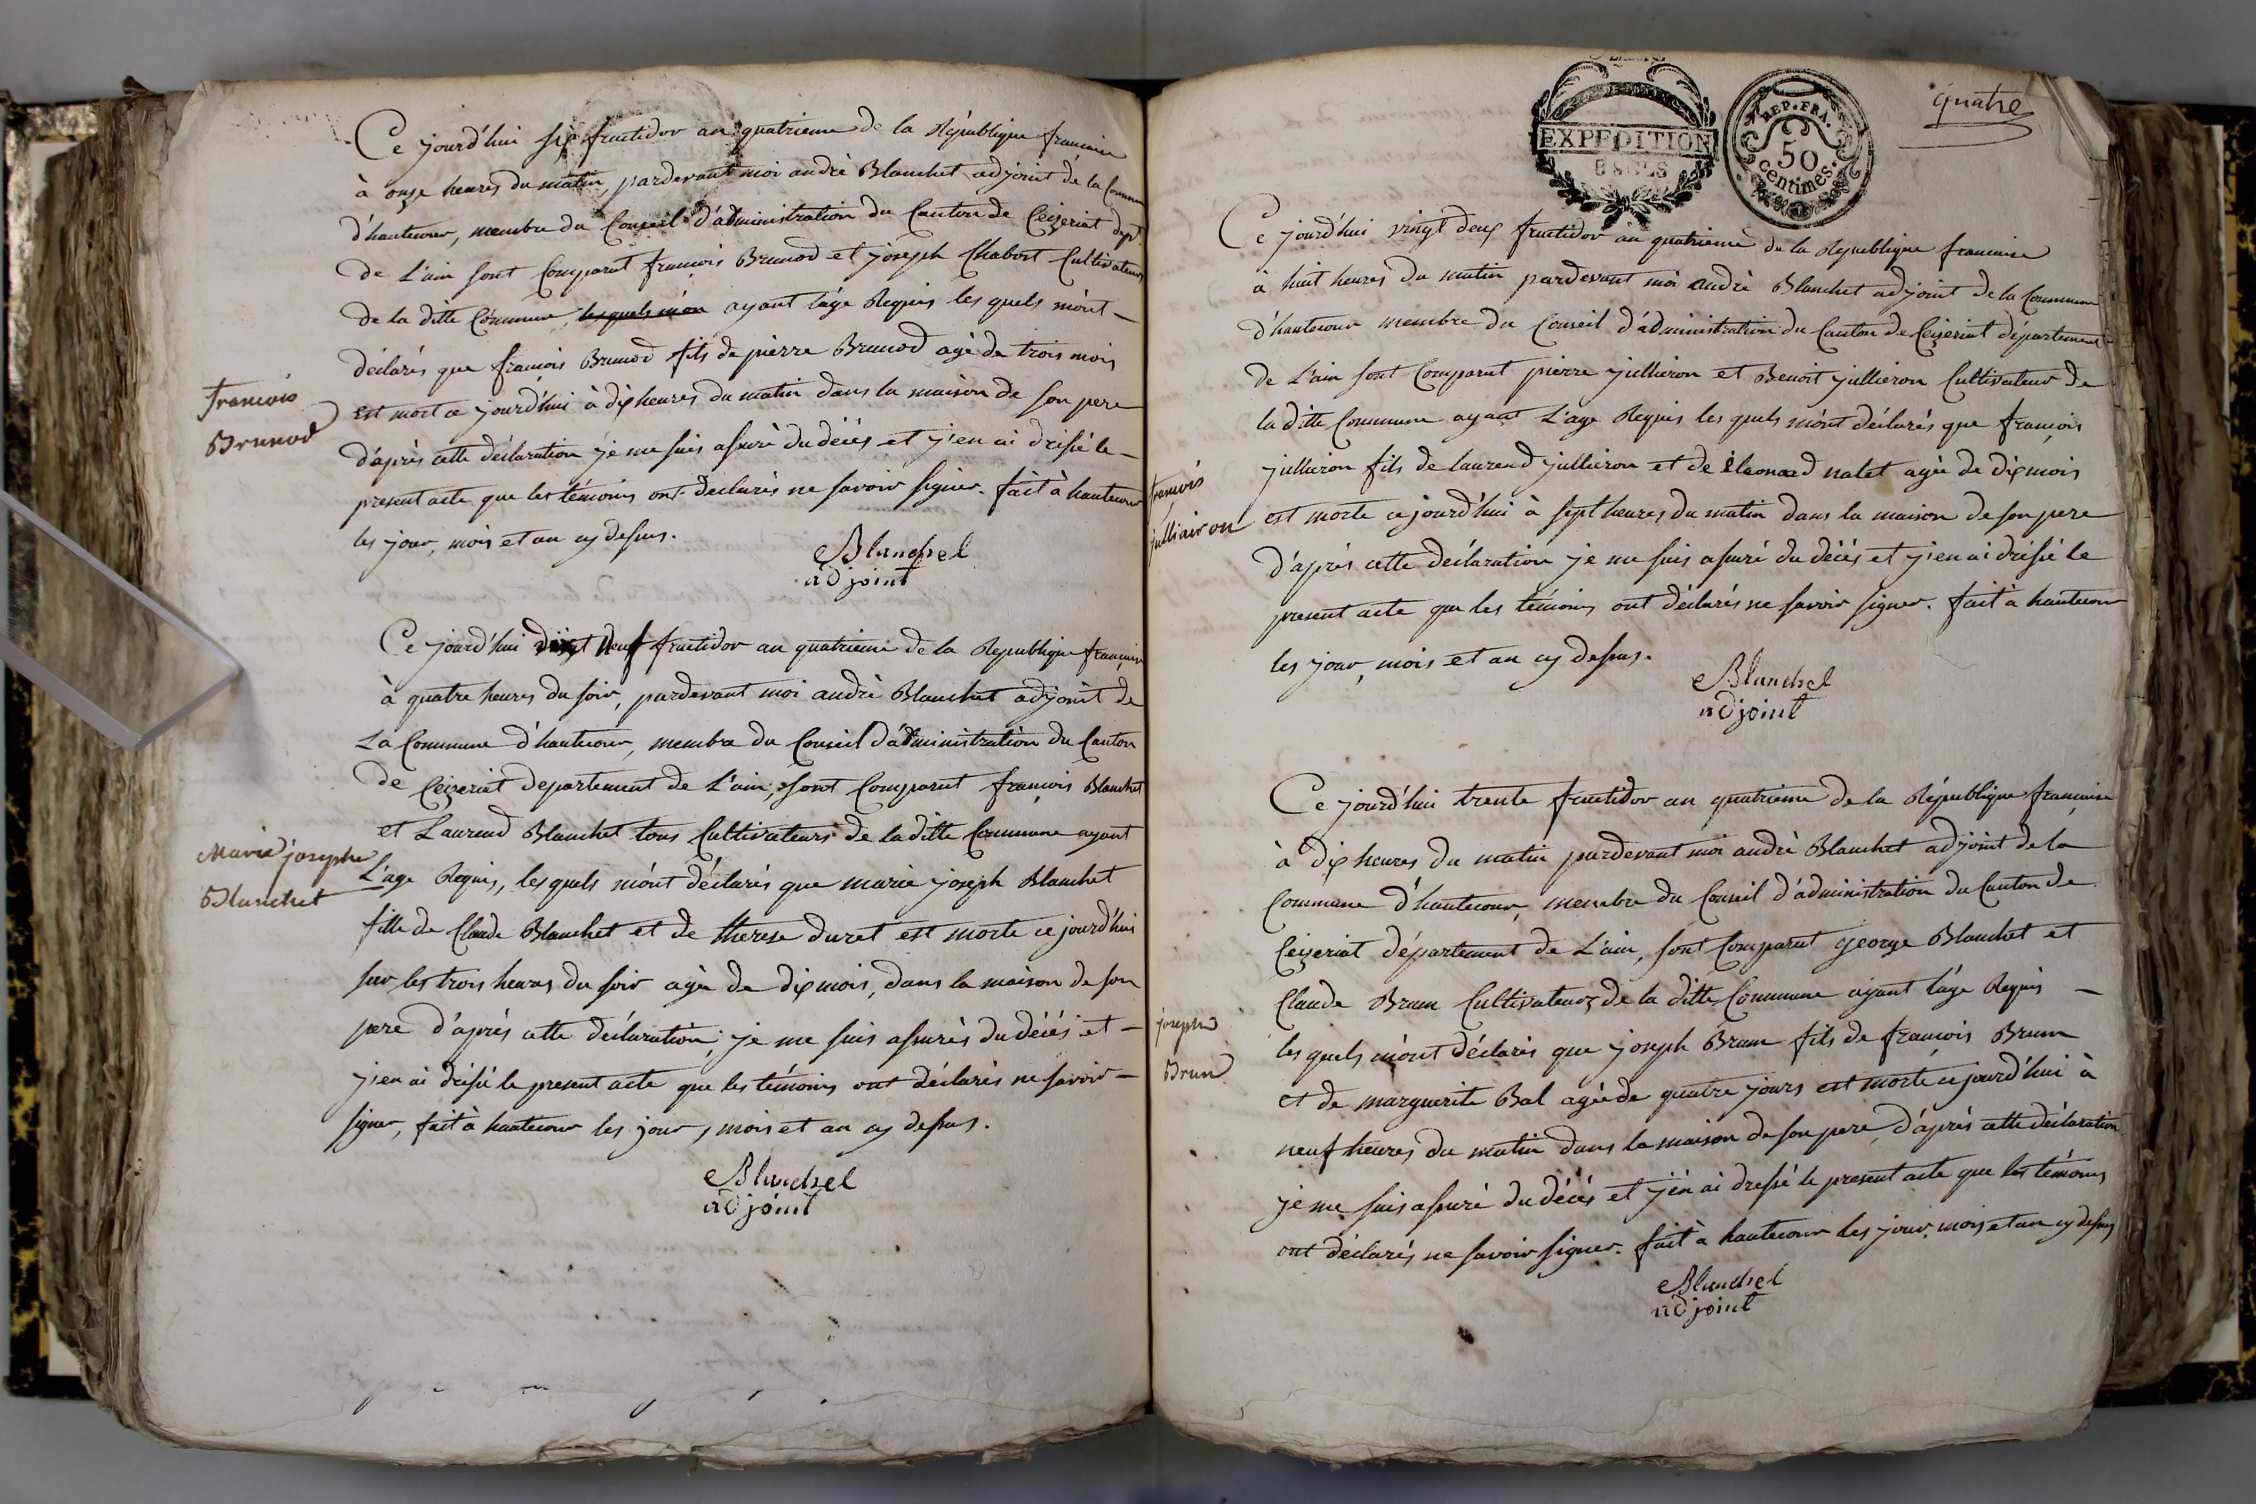 Ce jourd'hui six fructidor an quatrieme de la République francaise
à onze heures du matin, pardevant moi andrè Blanchet adjoint de la Commune
d'hautecour, membre du Conseil d'administration du Canton de Ceizeriat dept.
de L'ain sont Comparut françois Brunod et joseph Chabert Cultivateurs
de la ditte Commune, les quels m'on ayant l'âge Requis les quels m'ont
déclarés que françois Brunod fils de pierre Brunod agé de trois mois
est mort ce jourd'hui à dix heures du matin dans la maison de son pere
d'après cette déclaration je me suis assuré du décés et j'en ai drésié le
present acte que les témoins ont declarés ne savoir signer. fait à hautecour
les jour, mois et an cy dessus.
Blanchet
adjoint
francois
Brunod
Ce jourd'hui neuf fructidor an quatrieme de la Republique francaise
à quatre heures du soir, pardevant moi andrè Blanchet adjoint de
La Commune d'hautecour, membre du Conseil d'administration du Canton
de Ceizeriat departement de L'ain, sont Comparut françois Blanchet
et Laurend Blanchet tous Cultivateurs de la ditte Commune ayant
L'age Requis, les quels m'ont déclarés que marie joseph Blanchet
fille de Claude Blanchet et de therese duret est morte ce jourd'hui
sur les trois heures du soir agée de dix mois, dans la maison de son
pere d'après cette déclaration, je me suis assurés du décés et
j'en ai drésié le present acte que les témoins ont déclarés ne savoir
signer, fait à hautecour les jour, mois et an cy dessus.
Blanchet
adjoint
Marie josephe
Blanchet
EXPEDITION
REP. FRA.
50
centimes.
quatre
Ce jourd'hui vingt deux fructidor an quatrieme de la Republique francaise
à huit heures du matin pardevant moi andrè Blanchet adjoint de la Commune
d'hautecour membre du Conseil d'administration du Canton de Ceizeriat département
de L'ain sont Comparut pierre jullieron et Benoit jullieron Cultivateur de
la ditte Commune ayant L'age Requis les quels m'ont déclarés que françois
jullieron fils de laurend jullieron et de éleonard nalet agée de dix mois
est morte ce jourd'hui à sept heures du matin dans la maison de son pere
d'après cette declaration je me suis assuré du décés et j'en ai drésié le
present acte que les témoins ont déclarés ne savoir signer. fait à hautecour
les jour, mois et an cy dessus.
Blanchet
adjoint
francois
julliairon
Ce jourd'hui trente fructidor an quatrieme de la République française
à dix heures du matin pardevant moi andrè Blanchet adjoint de la
Commune d'hautecour, membre du Conseil d'administration du Canton de
Ceizeriat département de L'ain, sont Comparut george Blanchet et
Claude Brun Cultivateurs de la ditte Commune ayant l'âge Requis
les quels m'ont déclarés que joseph Brun fils de françois Brun
et de marguerite Bal agée de quatre jours est morte ce jourd'hui à
neuf heures du matin dans la maison de son pere, d'après cette déclaration
je me suis assuré du décés et j'en ai dressé le present acte que les témoins
ont déclarés ne savoir signer. fait à hautecour les jour, mois et an cy dessus
Blanchet
adjoint
joseph
Brun